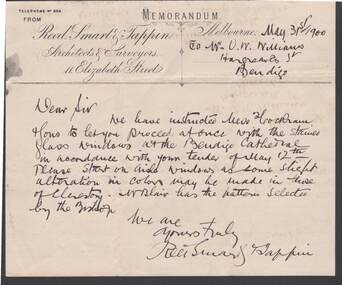 TELEPHONE No 804
FROM
MEMORANDUM
Reed, Smart & Tappin
Architects & Surveyors.
11 Elizabeth Street
Melbourne, May 31st 1900
To Mr U. W. Williams
Hargreaves St
Bendigo
Dear Sir
We have instructed Messrs Cockram
& Sons to let you proceed at once with the stained
glass windows at the Bendigo Cathedral
in accordance with your tender of May 12th
Please start on aisle windows as some slight
alteration in colors may be made in those
of Clerestory. Mr Blair has the patterns selected
by the Bishop
We are
Yours truly
Reed Smart & Tappin